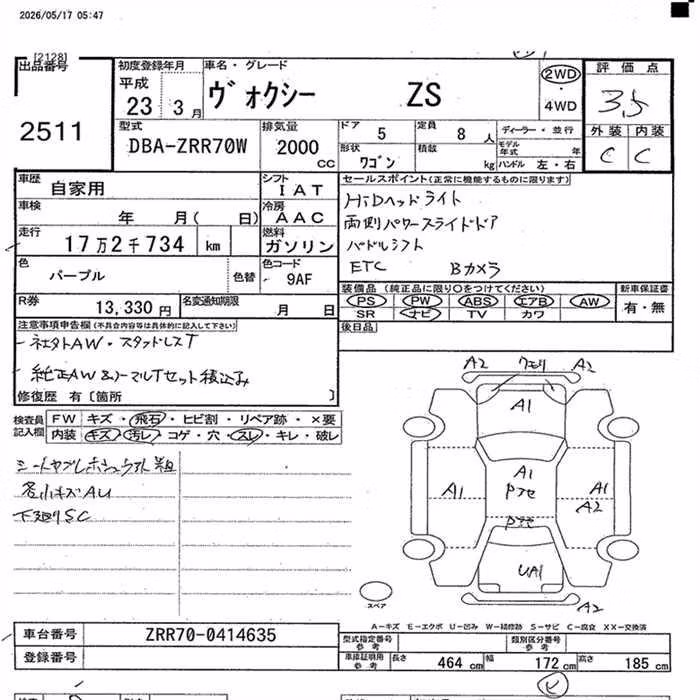 2026/05/17 05:47
[2128]
出品番号
2511
初度登録年月
平成
23 3 月
車名・グレード
ヴォクシー ZS
2WD
4WD
評価点
3.5
外装 内装
C C
型式
DBA-ZRR70W
排気量
2000 CC
ドア 5
定員 8 人
形状 ワゴン
積載 kg
ディーラー・並行
モデル年式 年
ハンドル 左・右
車歴 自家用
シフト IAT
車検 年 月( 日)
冷房 AAC
走行 17万2千734 km
燃料 ガソリン
色 パープル
色替
色コード 9AF
R券 13,330 円
名変通知期限 月 日
セールスポイント(正常に機能するものに限ります)
HiDヘッドライト
両側パワースライドドア
パドルシフト
ETC Bカメラ
装備品 (純正品に限り○をつけてください)
PS PW ABS エアB AW
SR ナビ TV カワ
新車保証書
有・無
後日品
注意事項申告欄(不具合内容等は具体的に記入して下さい)
社外AW・スタッドレスT
純正AW&ノーマルTセット積込み
修復歴 有〔箇所 〕
検査員記入欄
FW キズ・飛石・ヒビ割・リペア跡・×要
内装 キズ・汚レ・コゲ・穴・スレ・キレ・破レ
各小キズAU
下廻りSC
A2 ワモリ A2
A1
A1
A1
Pフセ
Pフセ
A1
A2
UA1
A2
スペア
A-キズ E-エクボ U-凹み W-補修跡 S-サビ C-腐食 XX-交換済
車台番号 ZRR70-0414635
登録番号
型式指定番号 参考
類別区分番号 参考
車庫証明用 参考
長さ 464 cm 幅 172 cm 高さ 185 cm